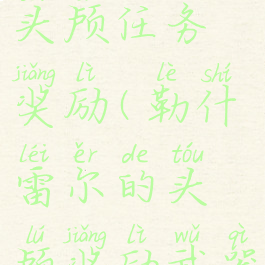 头颅任务
jiǎng lì lè shí
奖励(勒什
léi ěr de tóu
雷尔的头
lú jiǎng lì wǔ qì
颅奖励武器